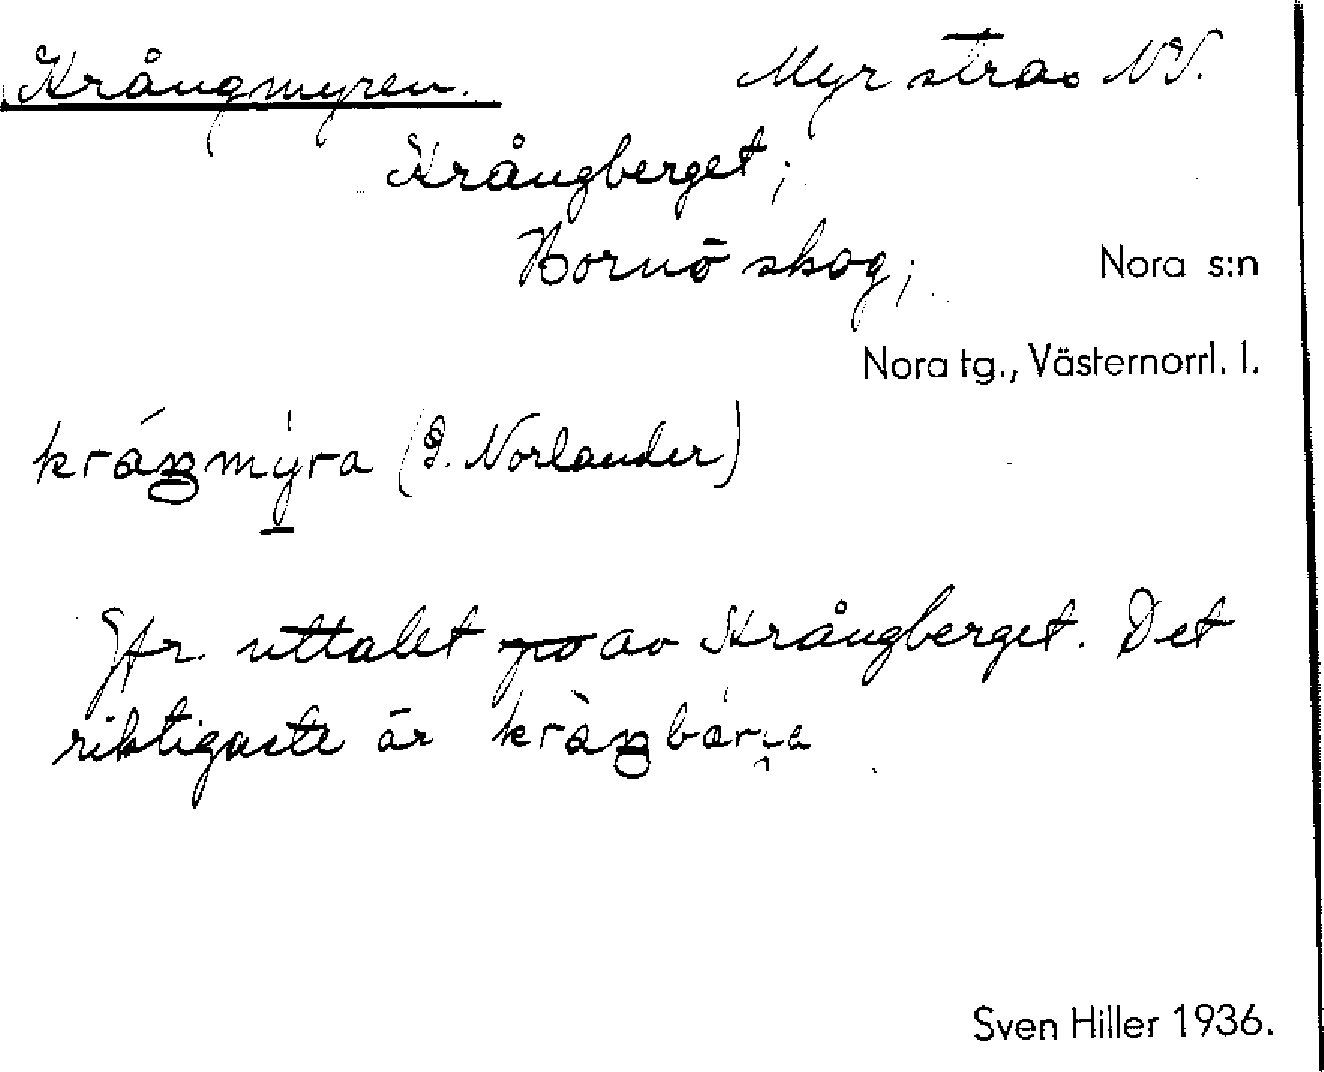 Krångmyren. Myr strax NV.
Krångberget;
Hornö skog; Nora s:n
Nora tg., Västernorrl. l.
kráŋmýra (G. Norlander)
Jfr. uttalet på av Krångberget. Det
riktigaste är kràŋbárja
Sven Hiller 1936.